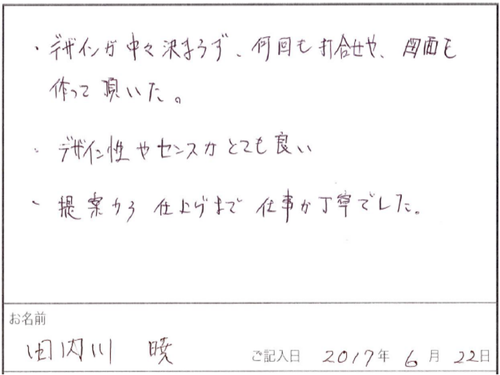 ・デザインが中々決まらず、何回も打合せや、図面も
作って頂いた。
・デザイン性やセンスがとても良い
・提案から仕上げまで仕事が丁寧でした。
お名前
田内川 暁
ご記入日 2017年6月22日